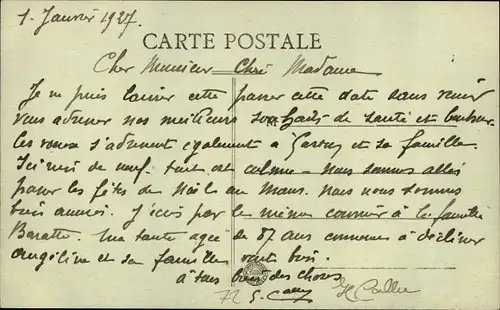 1. Janvier 1927.
CARTE POSTALE
Cher Monsieur Chère Madame
Je ne puis laisser cette passer cette date sans venir
vous adresser nos meilleurs souhaits de santé et bonheur.
les voeux s'adressent également à et sa famille.
Ici rien de neuf. tout est calme - nous sommes allés
passer les fêtes de Noël au Mans. nous nous sommes
bien amusés. J'écris par le même courrier à la famille
Baratte. Ma tante agée de 87 ans commence à décliner
Angéline et sa famille vont bien.
à tous bien des choses